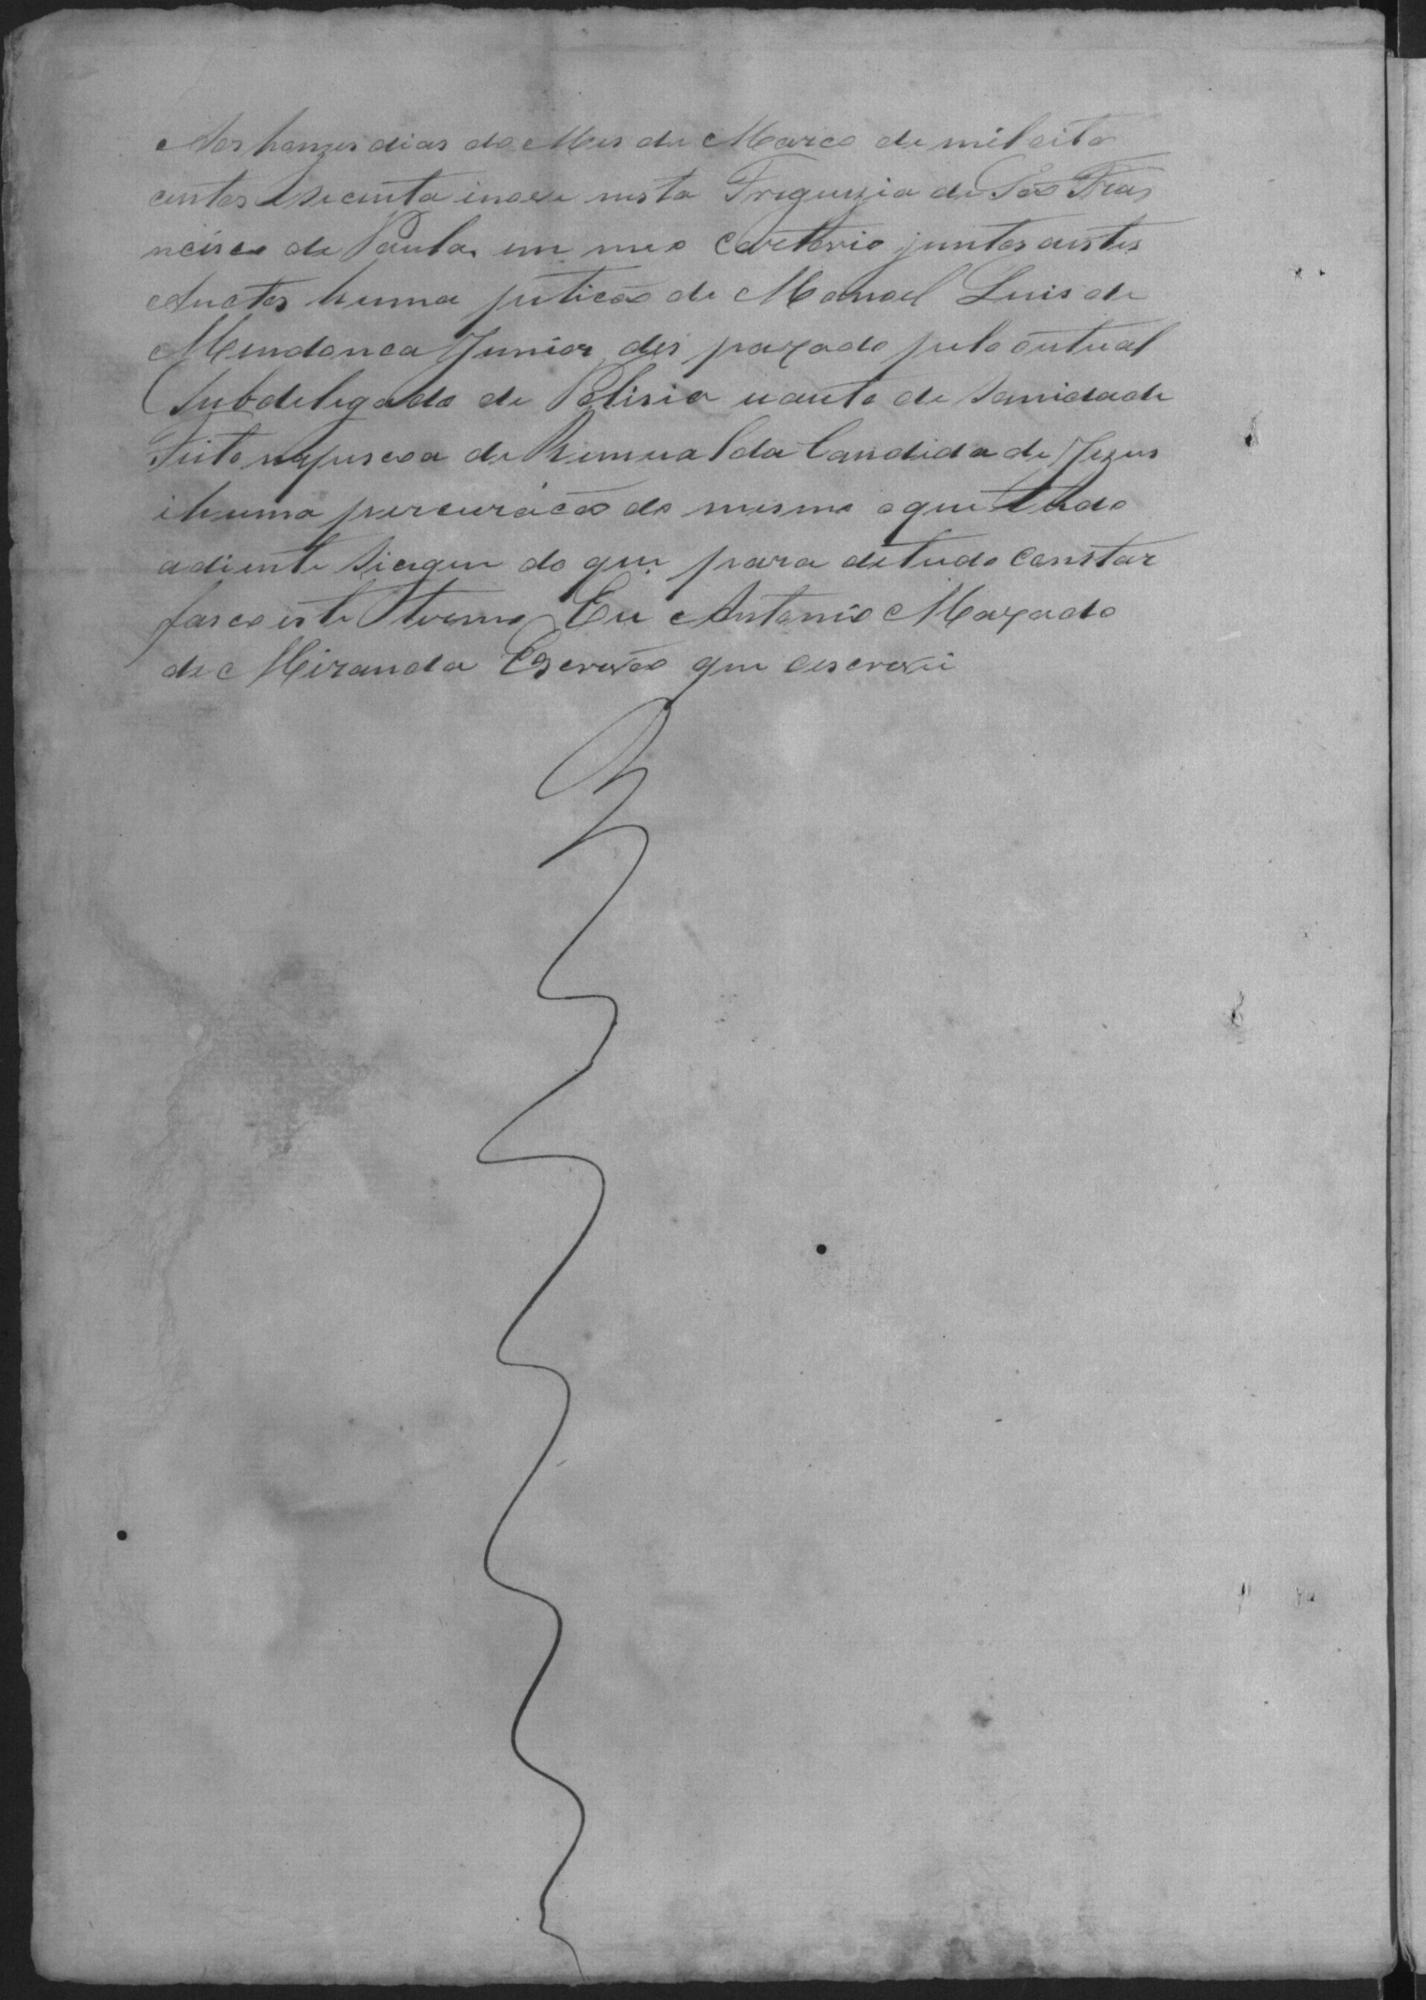 Aos honzes dias do Mes de Março de mil oito
centos e secenta inove nesta Freguezia de São Fran
ncisco de Paula em meo Cartorio junto aestes
Auctos huma petição de Manoel Luis de
Mendonca Junior des paxado pelo autual
Subdelegado de Polisia iauto de Sanidade
Feito napesçoa de Rumualda Candida de Jezus
ihuma percuracão do mesmo oque tudo
adiente siegue do que para detudo constar
fasco este termo Eu Antonio Maxado
de Miranda Escrivão que oescrevi